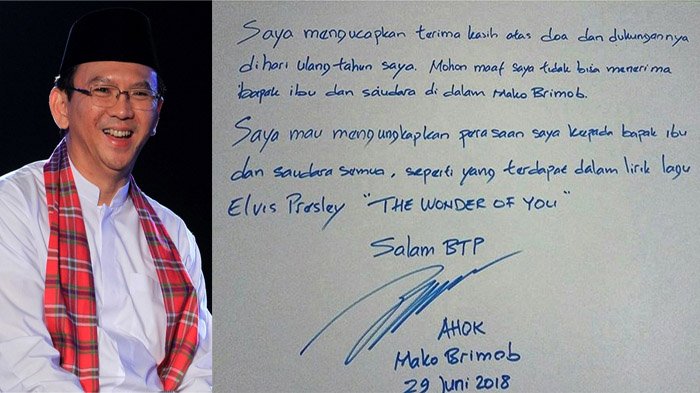 Saya mengucapkan terima kasih atas doa dan dukungannya
di hari ulang tahun saya. Mohon maaf saya tidak bisa menerima
bapak ibu dan saudara di dalam Mako Brimob.
Saya mau mengungkapkan perasaan saya kepada bapak ibu
dan saudara semua, seperti yang terdapat dalam lirik lagu
Elvis Presley "THE WONDER OF YOU"
Salam BTP
AHOK
Mako Brimob
29 Juni 2018